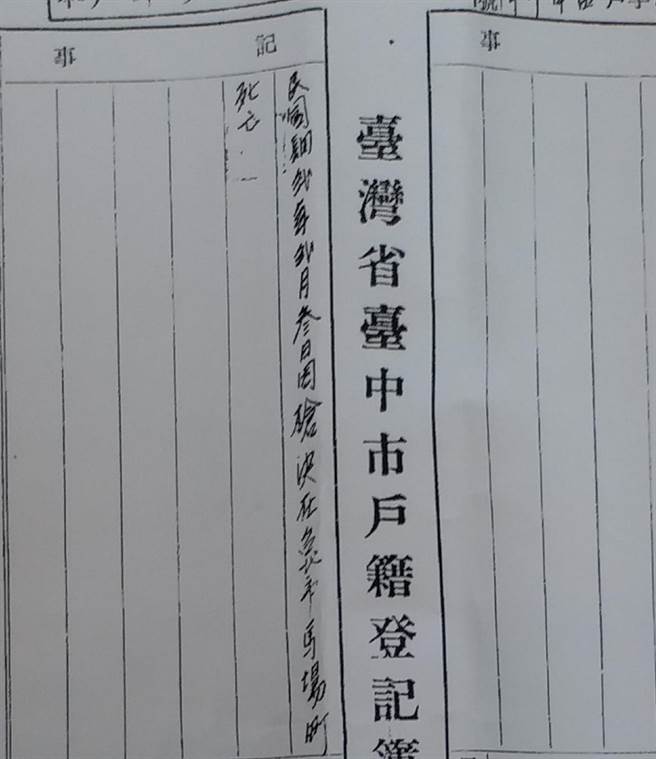 事
臺灣省臺中市戶籍登記簿
記事
民國肆貳年貳月叁日因槍決在臺北市馬場町
死亡